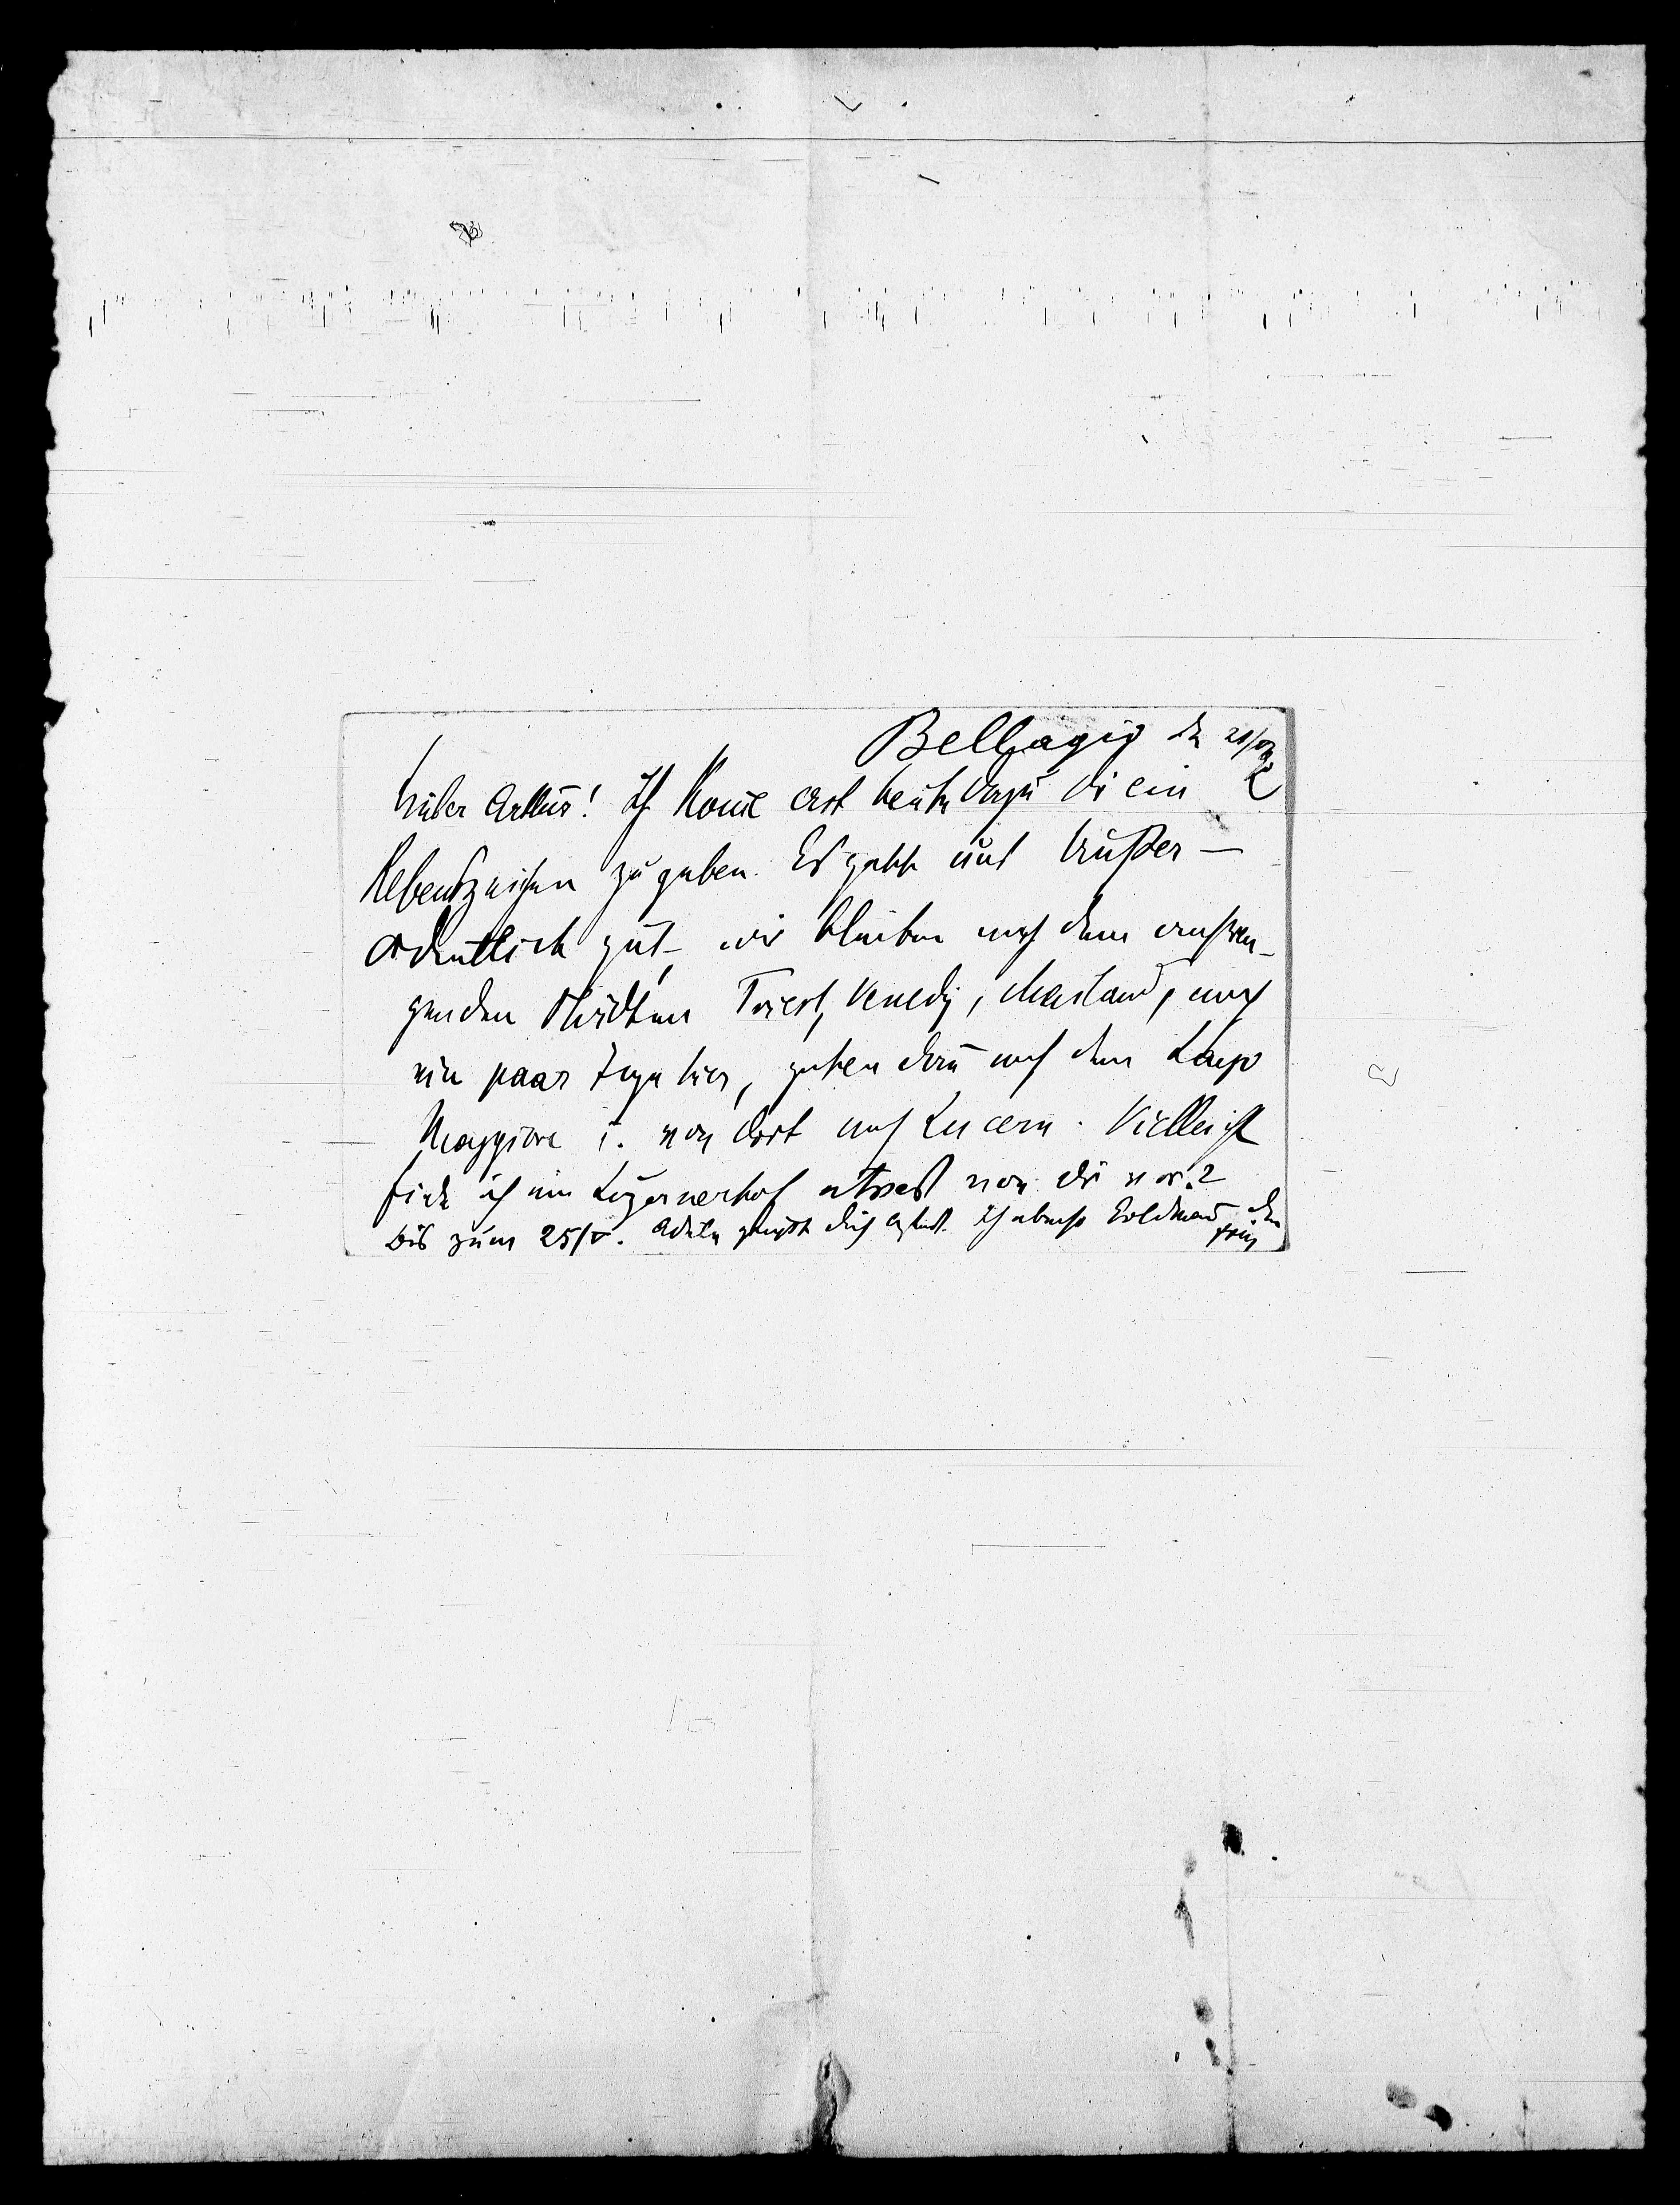 Bellagio den 21/5
Lieber Arthur! Ich kom̅e erst heute dazu dir ein
Lebenszeichen zu geben. Es geht uns außer-
ordentlich gut, wir bleiben nach dem anstren-
genden Städten Triest, Venedig, Mailand, noch
ein paar Tage hier, gehen dan̅ auf den Lago
Maggiore u. von dort nach Lucern. Vielleicht
finde ich im Luzernerhof etwas von dir vor?
bis zum 25/V. Adele grüßt dich Ich ebenso Goldman̅